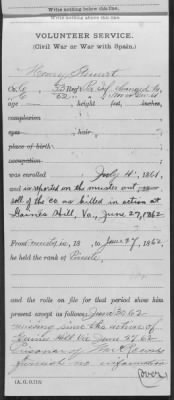 Write nothing below this line.
Write nothing above this line.
VOLUNTEER SERVICE.
(Civil War or War with Spain.)
Henry Stewart
Co. G 33 Reg't Pa Inf changed to
G 62
age —, height feet, inches,
complexion
eyes , hair
place of birth
occupation
was enrolled July 4, 1861,
and is reported on the muster out
roll of the co as killed in action at
Gaines Hill, Va., June 27, 1862
From muster in, 18 , to June 27, 1862,
he held the rank of Private,
and the rolls on file for that period show him
present except as follows: June 30, 62
missing since the action of
Gaines Hill Va June 27, 62
Prisoner of War Records
furnish no information
(over)
(A. G. O. 113)